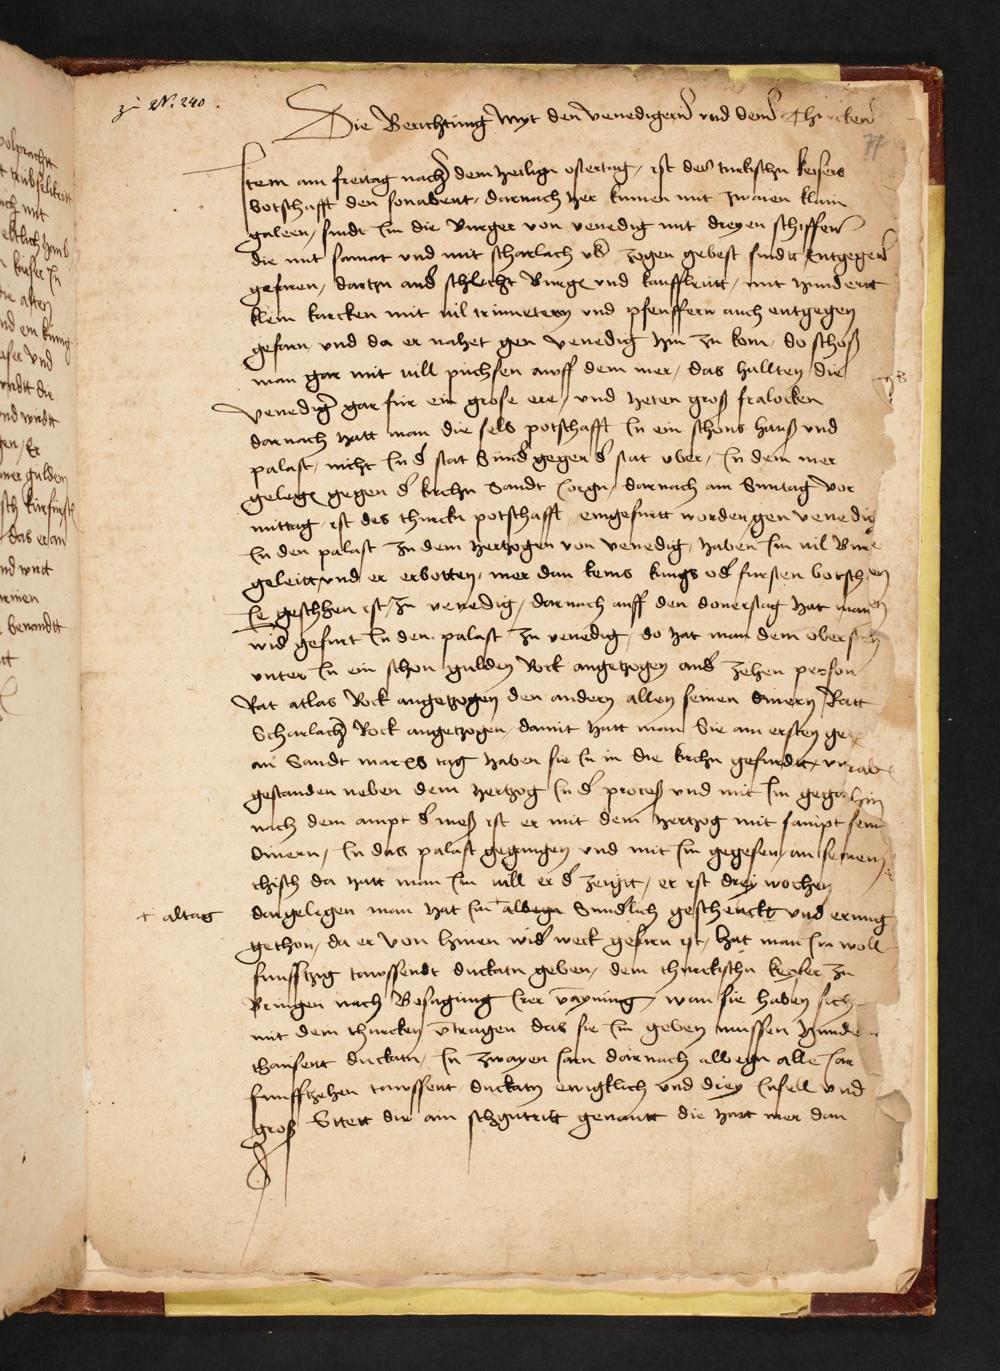 zu N. 240.
Die Berichtung Myt den venedigern vnd dem Thurcken
77
Item am freitag nach dem heilign ostertag, ist des turkischn keisers
botschafft den sonabent, darnach her kumen mit zwaien klain
galeen, sindt Im die Burger von venedig mit dreyen schiffen
die mit samat vnd mit scharlach vbr zogen gebest sindtt entgegen
gefaren, dartzu andr schlecht Burger vnd kauffleutt, mit hundertt
klein barcken mit vil trumetern vnd pfeuffern auch entgegen
gefarn, vnd da er nahet gen venedig hin zu kom, do schoß
man gar mit vill puchsen auff dem mer, das hallten die
venedigr gar fur ein grose ere, vnd heten groß fralocken
darnach hatt man die selb potschafft In ein schons hauß vnd
palast, nicht In dr stat Sundr gegen dr stat vber, In dem mer
gelegn gegen dr kirchn Sandt Jorgn, darnach am Suntag vor
mittag, ist des thurckn potschafft eingefurtt worden gen venedig
In den palast zu dem hertzogen von venedig, haben Im vil
geleitt, vnd er erbotten, mer dan keins kungs odr fursten botsch en
Ee geschhen ist, zu venedig, darnach auff den donerstag hat man
widr gefurt In den palast zu venedig, do hat man dem obersten
vnter In ein schon gulden Rock angetzogen andr zehen person
Rat atlas Rock angetzogen den andern allen seinen dinern Ratt
Scharlach Rock angetzogen, damit hatt man Sie am ersten
an Sandt marxs tag haben sie In in die kirchn gefurdtt,
gestanden neben dem hertzog In dr proceß vnd mit Im
nach dem ampt dr meß ist er mit dem hertzog mit sampt sein
dinern, In das palast gegangen vnd mit Im gegesen, an seinem
thisch da hatt man Im vill er dr zeigtt, er ist drey wochen
† altag dargelegen man hat Im † albegn Sundrlich geschenckt vnd erung
gethon, da er von hinen widr weck gefarn ist, hat man Im woll
funfftzig tawssendt duckatn geben, dem thurckischn keyser zu
Bringen nach Besagung Irer vaynung, wan sie haben sich
mit dem thurcken vtragen das sie Im geben mussen hunde
thausent duckatn, In zwayen Jarn darnach albegn alle Jar
funfftzehen tawssent duckatn ewigklich vnd drey Insell vnd
groß Stett die ain schgutritt genantt die hatt mer dan